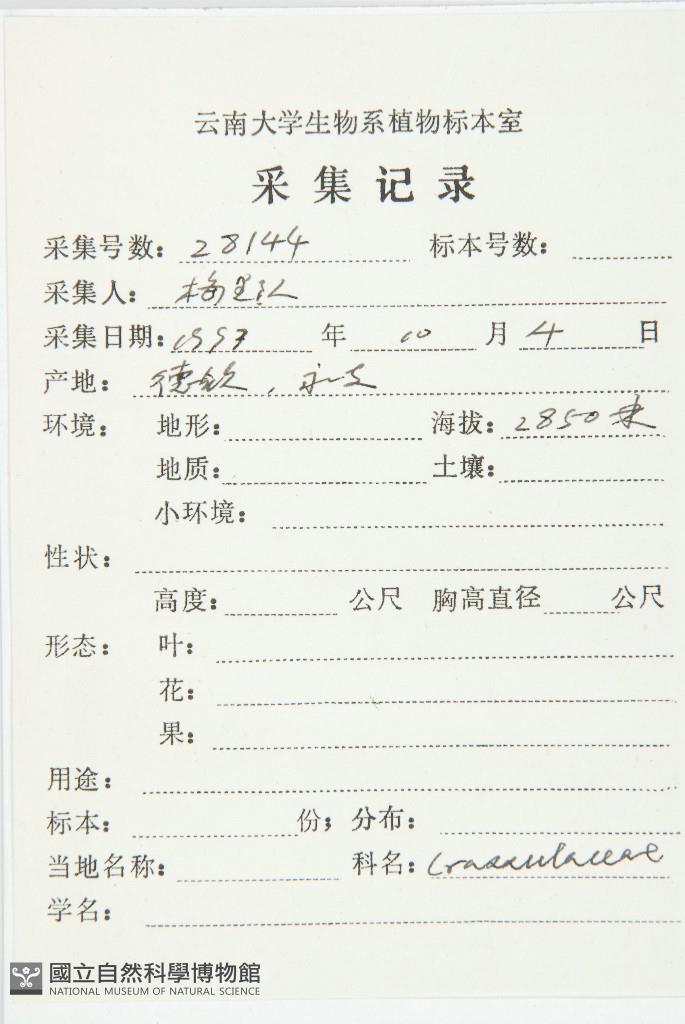 云南大学生物系植物标本室
采集记录
采集号数：28144 标本号数：
采集人：梅里队
采集日期：1993 年 10 月 4 日
产地：德钦，永支
环境：地形： 海拔：2850米
地质： 土壤：
小环境：
性状：
高度： 公尺 胸高直径 公尺
形态：叶：
花：
果：
用途：
标本： 份；分布：
当地名称： 科名：Crassulaceae
学名：
國立自然科學博物館
NATIONAL MUSEUM OF NATURAL SCIENCE